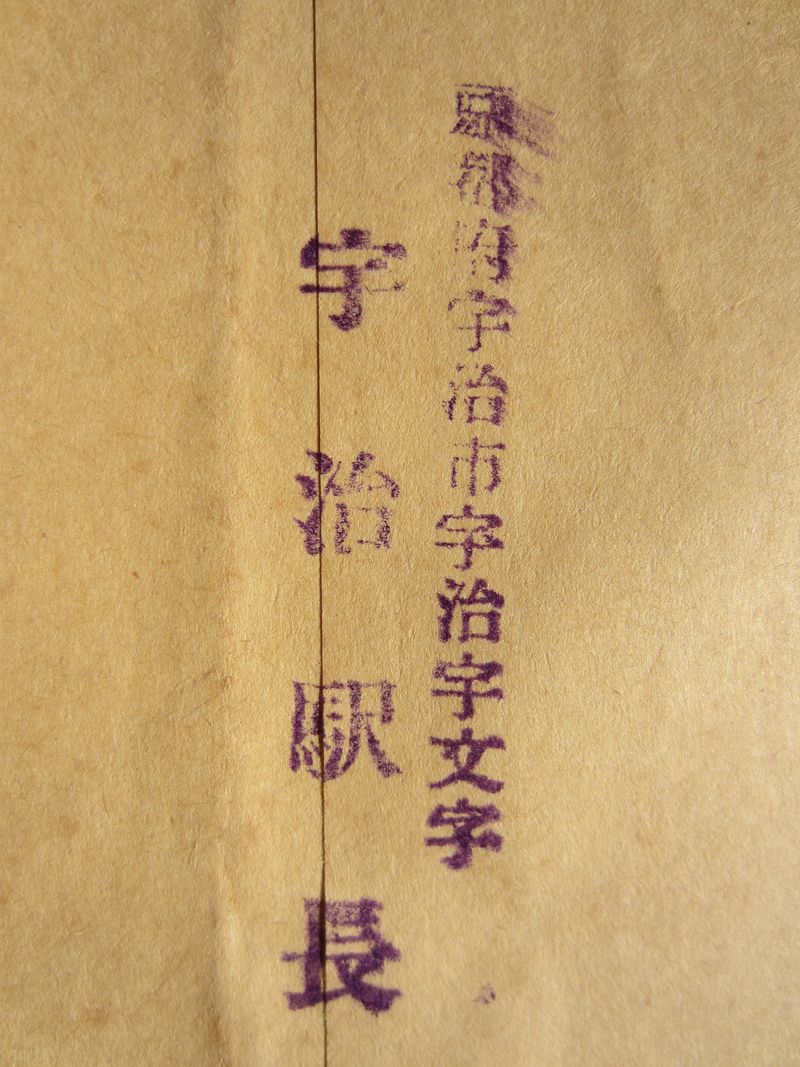 京都府宇治市宇治宇文字
宇治駅長